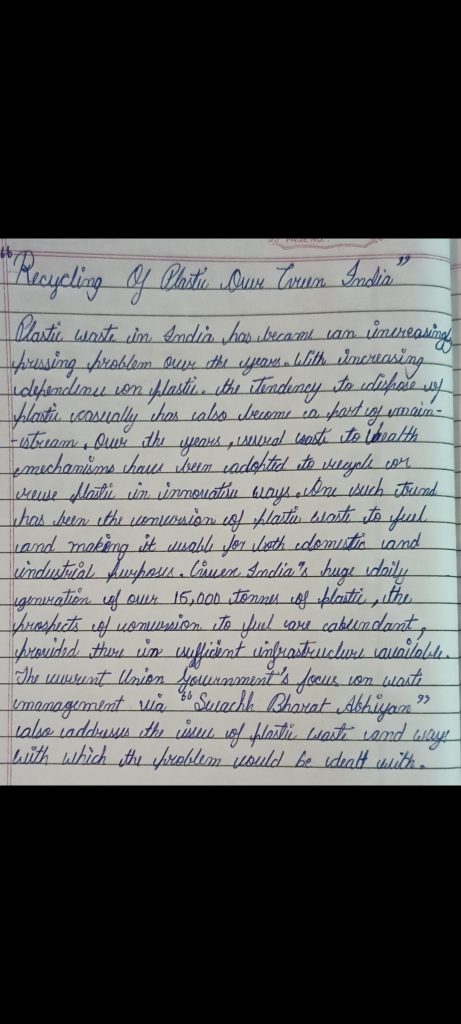 PAGE NO.:
"Recycling Of Plastic Over Green India"
Plastic waste in India has became an increasingly
pressing problem over the years. With increasing
dependence on plastic. the tendency to dispose of
plastic casually has also become a part of main-
-stream. Over the years, several waste to wealth
mechanisms have been adopted to recycle or
reuse plastic in innovative ways. One such trend
has been the conversion of plastic waste to fuel
and making it usable for both domestic and
industrial purposes. Given India's huge daily
generation of over 15,000 tonnes of plastic, the
prospects of conversion to fuel are abundant,
provided there is sufficient infrastructure available.
The current Union Government's focus on waste
management via "Swachh Bharat Abhiyan"
also addresses the issue of plastic waste and ways
with which the problem could be dealt with.